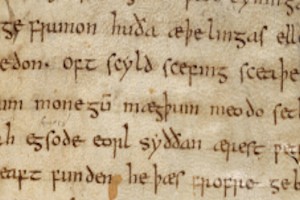 ge frumon huða æþelingas elle
edon. oft scyld scefing sceaþe
um monegū mægþum meodo setl
ah egsode eorl syððan ærest
eaft funden he þæs frofre geb